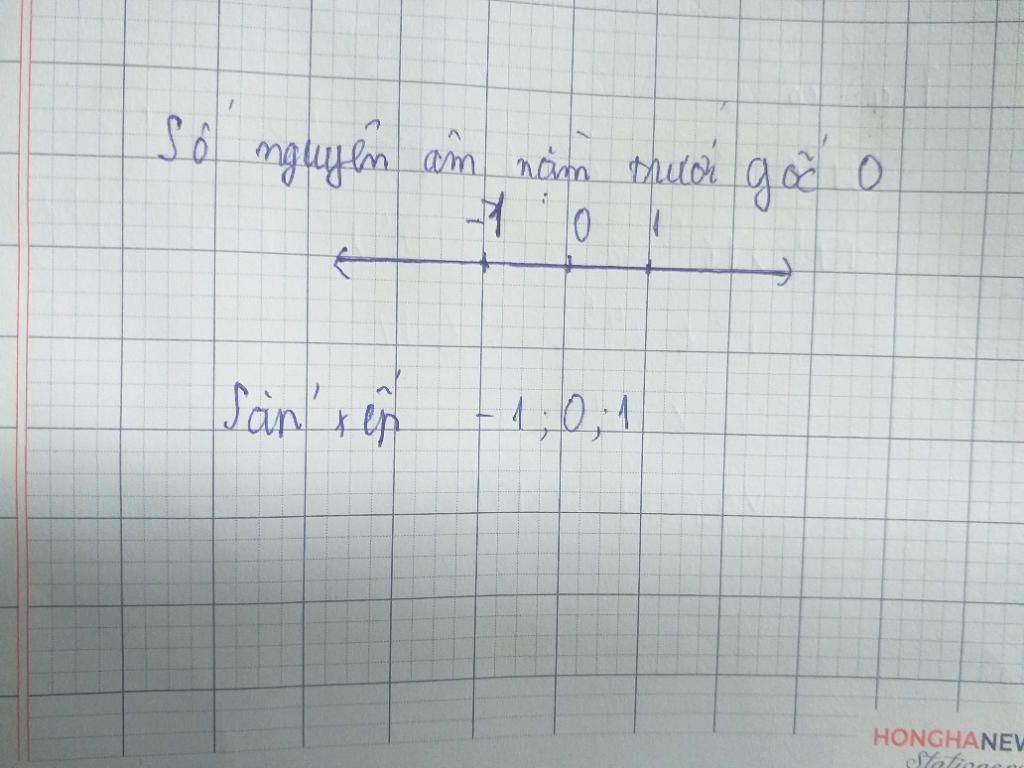 Số nguyên âm nằm trươí gốc 0
-1 0 1
Sàń xếp -1 ; 0 ; 1
HONGHANEW
Stationery